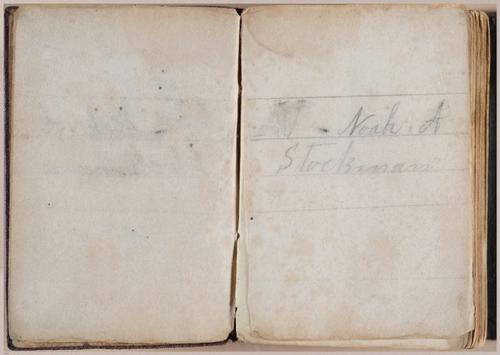 Noah. A
Stockman